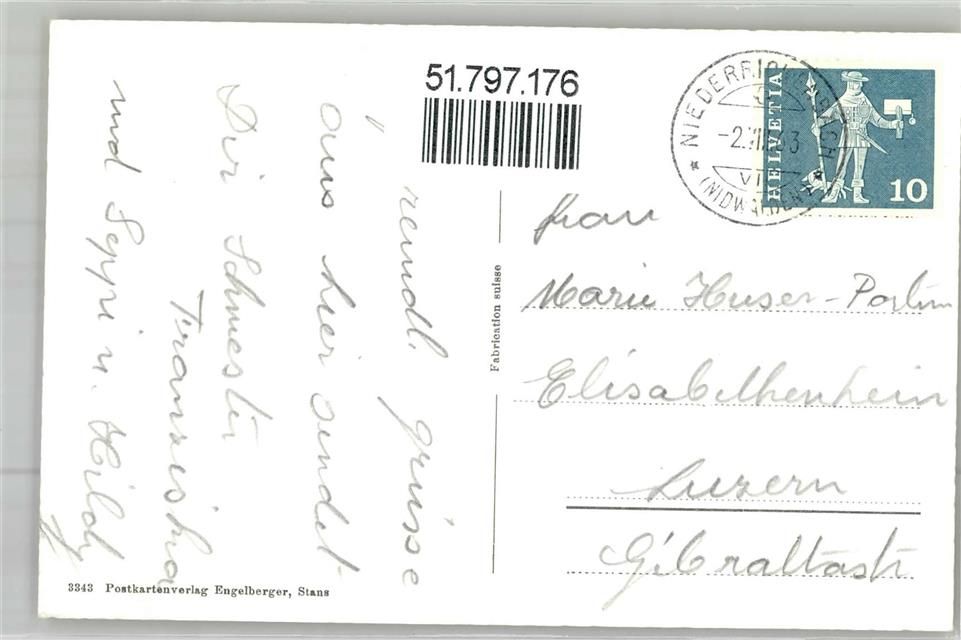 51.797.176
NIEDERRICKENBACH
-2.VII.63
VI
(NIDWALDEN)
HELVETIA
10
Freundl. grüsse
aus hier sendet
Dir Schwester
Franziska
und Seppi u. Hildy
Fabrication suisse
Frau
Marie Huser-Portm
Elisabethenheim
Luzern
Gibraltastr
3343 Postkartenverlag Engelberger, Stans